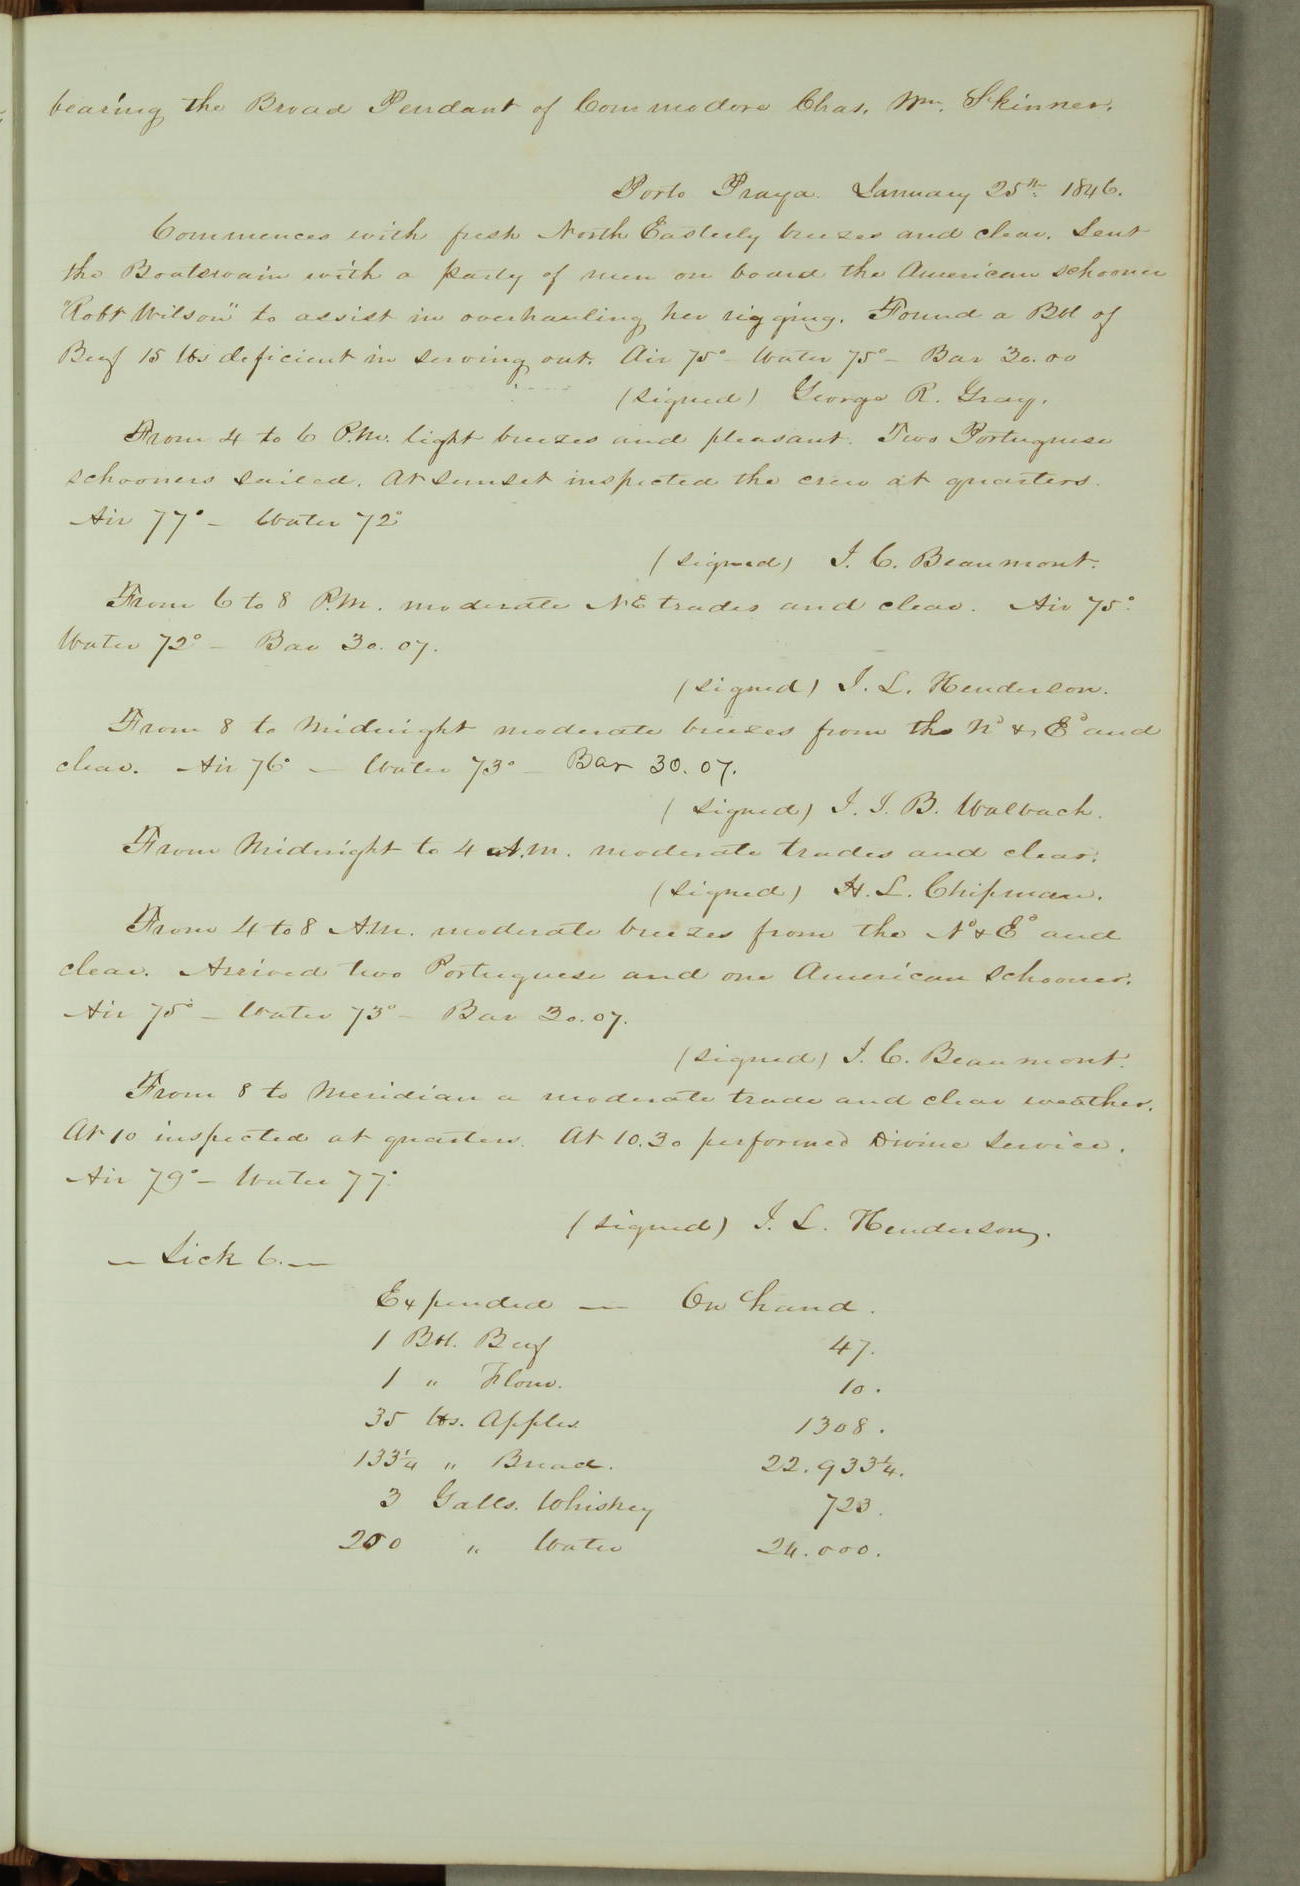 bearing the Broad Pendant of Commodore Chas. Wm. Skinner.
Porto Praya. January 25th. 1846.
Commences with fresh North Easterly breezes and clear. Sent
the Boatswain with a party of men on board the American schooner
"Robt Wilson" to assist in overhauling her rigging. Found a Bbl of
Beef 15 lbs deficient in serving out. Air 75° – Water 75° – Bar 30.00
(signed) George R. Gray.
From 4 to 6 P.M. light breezes and pleasant. Two Portuguese
schooners sailed. At sunset inspected the crew at quarters.
Air 77° – Water 72°
(signed) I. C. Beaumont.
From 6 to 8 P.M. moderate N E trades and clear. Air 75°.
Water 72° – Bar 30.07.
(signed) I. L. Henderson.
From 8 to Midnight moderate breezes from the Nd & Ed and
clear. Air 76° – Water 73° – Bar 30.07.
(signed) I. I. B. Walbach.
From Midnight to 4 A.M. moderate trades and clear.
(signed) H. L. Chipman.
From 4 to 8 A.M. moderate breezes from the Nd & Ed and
clear. Arrived two Portuguese and one American schooner.
Air 75° – Water 73° – Bar 30.07.
(signed) I. C. Beaumont.
From 8 to Meridian a moderate trade and clear weather.
At 10 inspected at quarters. At 10.30 performed Divine Service.
Air 79° – Water 77°
(signed) I. L. Henderson.
— Sick 6. —
Expended — On hand.
1 Bbl. Beef 47.
1 " Flour. 10.
35 lbs. Apples 1308.
133¼ " Bread. 22.933¼.
3 Galls. Whiskey 723.
200 " Water 24.000.